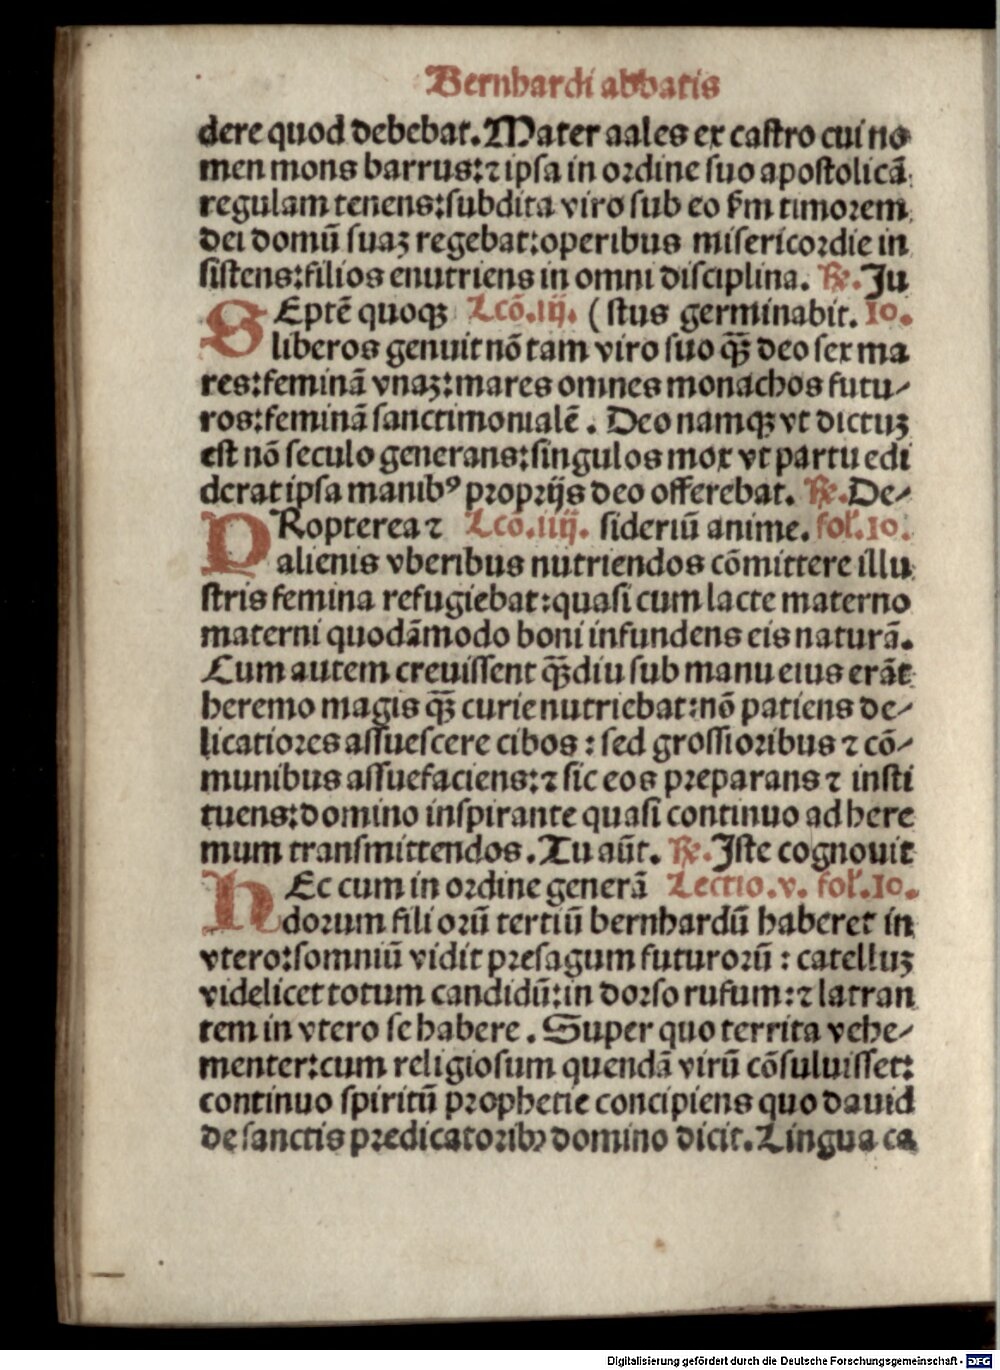 Bernhardi abbatis
dere quod debebat. Mater aales ex castro cui no
men mons barrus: ⁊ ipsa in ordine suo apostolicā
regulam tenens: subdita viro sub eo km timorem
dei domū suaꝫ regebat: operibus misericordie in
sistens: filios enutriens in omni disciplina. ℟. Ju
SEptē quoqꝫ Lcō. iij. ( stus germinabit. 10.
liberos genuit nō tam viro suo qꝫ̄ deo sex ma
res: feminā vnaꝫ: mares omnes monachos futu-
ros: feminā sanctimonialē. Deo namqꝫ vt dictuꝫ
est nō seculo generans: singulos mox vt partu edi
derat ipsa manibꝰ proprijs deo offerebat. ℟. De-
PRopterea ⁊ Lcō. iiij. sideriū anime. fol'. 10.
alienis vberibus nutriendos cōmittere illu
stris femina refugiebat: quasi cum lacte materno
materni quodāmodo boni infundens eis naturā.
Cum autem crevissent qꝫ̄diu sub manu eius erāt
heremo magis qꝫ̄ curie nutriebat: nō patiens de-
licatiores assuescere cibos: sed grossioribus ⁊ cō-
munibus assuefaciens: ⁊ sic eos preparans ⁊ insti
tuens: domino inspirante quasi continuo ad here
mum transmittendos. Tu aūt. ℟. Iste cognouit
HEc cum in ordine generā Lectio. v. fol'. 10.
dorum filiorū tertiū bernhardū haberet in
vtero: somniū vidit presagum futurorū: catelluꝫ
videlicet totum candidū: in dorso rufum: ⁊ latran
tem in vtero se habere. Super quo territa vehe-
menter: cum religiosum quendā virū cōsuluisset:
continuo spiritū prophetie concipiens quo dauid
de sanctis predicatoribꝫ domino dicit. Lingua ca
Digitalisierung gefördert durch die Deutsche Forschungsgemeinschaft - DFG